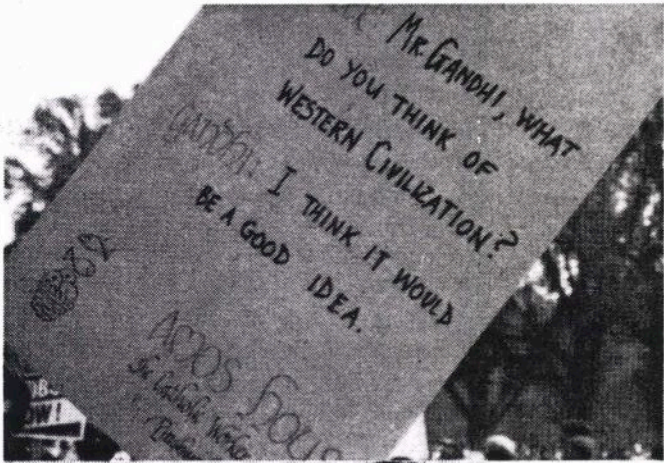 MR. GANDHI, WHAT
DO YOU THINK OF
WESTERN CIVILIZATION?
Gandhi: I THINK IT WOULD
BE A GOOD IDEA.
AMOS HOUSE
The Catholic Worker
OW!